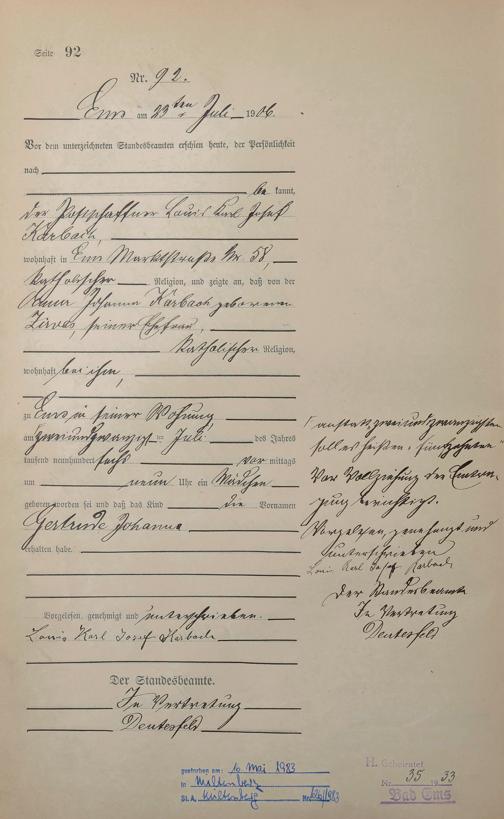 Seite 92
Nr. 92.
Ems am 23ten Juli 1906.
Vor dem unterzeichneten Standesbeamten erschien heute, der Persönlichkeit
nach
be kannt,
der Postschaffner Louis Karl Josef
Karbach,
wohnhaft in Ems Marktstraße Nr. 58,
katholischer Religion, und zeigte an, daß von der
Anna Johanna Karbach geborenen
Zirvas, seiner Ehefrau,
katholischer Religion,
wohnhaft bei ihm,
zu Ems in seiner Wohnung
am zweiundzwanzigten Juli des Jahres
tausend neunhundert sechs vor mittags
um neun Uhr ein Mädchen
geboren worden sei und daß das Kind die Vornamen
Gertrude Johanna
erhalten habe.
Vorgelesen, genehmigt und unterschrieben.
Louis Karl Josef Karbach
Der Standesbeamte.
In Vertretung
anstatt zweiundzwanzigsten
soll es heißen: fünfzehnten
Vor Vollziehung der Eintra-
gung berichtigt.
Vorgelesen, genehmigt und
unterschrieben
Louis Karl Josef Karbach
Der Standesbeamte
In Vertretung
gestorben am: 10. Mai 1983
in Miltenberg
St. A. Miltenberg Nr. /1983
H. Geheiratet
Nr. 35 1933
Bad Ems